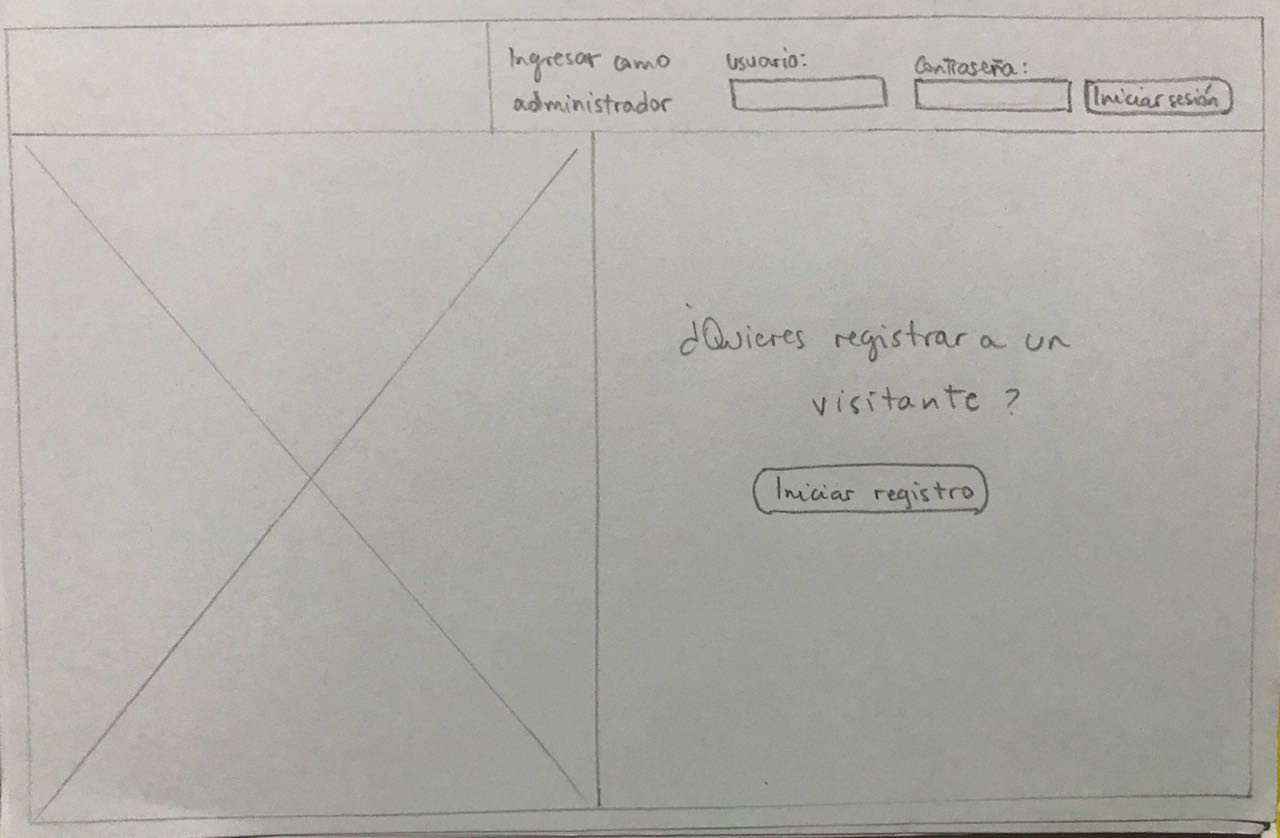 Ingresar como
administrador
usuario:
Contraseña:
Iniciar sesión
¿Quieres registrar a un
visitante?
Iniciar registro